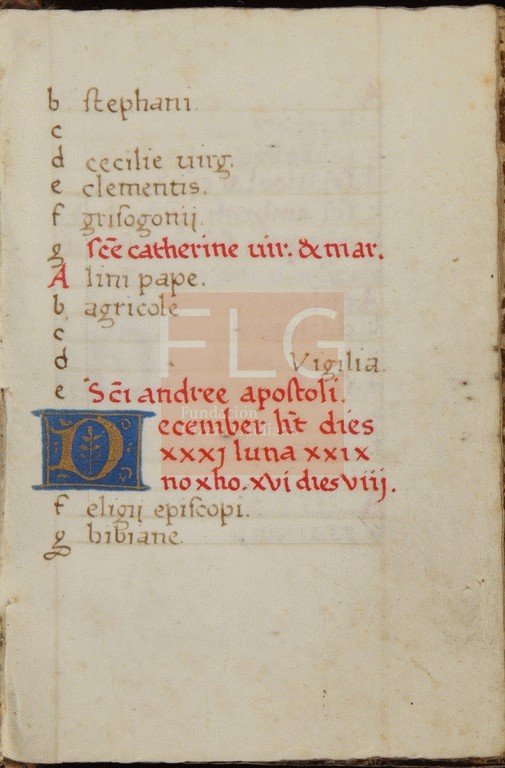 b stephani
c
d cecilie uirg.
e clementis.
f grisogonij.
g Sc̄e catherine uir. & mar.
A lini pape.
b agricole
c
d Vigilia.
e Sc̄i andree apostoli.
December hr̄t dies
xxxj luna xxix
nox ho. xvi dies viij.
f eligij episcopi.
g bibiane
FLG
Fundación